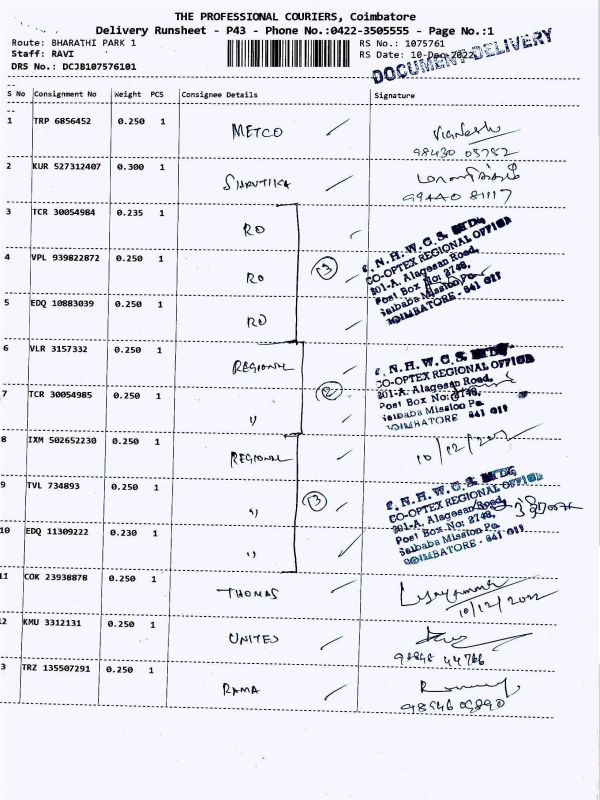 THE PROFESSIONAL COURIERS, Coimbatore
Delivery Runsheet - P43 - Phone No.:0422-3505555 - Page No.:1
Route: BHARATHI PARK 1 RS No.: 1075761
Staff: RAVI RS Date: 10-Dec-2022
DRS No.: DCJB107576101
DOCUMENT DELIVERY
S No Consignment No Weight PCS Consignee Details Signature
1 TRP 6856452 0.250 1 METCO Vignesh
98430 05752
2 KUR 527312407 0.300 1 SHRUTIKA
99440 81117
3 TCR 30054984 0.235 1 RO
4 VPL 939822872 0.250 1 RO
3
5 EDQ 10883039 0.250 1 RO
T. N. H. W. C. S. LTD.,
CO-OPTEX REGIONAL OFFICE
201-A, Alagesan Road,
Post Box No: 2748,
Saibaba Mission Po.
COIMBATORE - 641 011
6 VLR 3157332 0.250 1 REGIONAL
2
7 TCR 30054985 0.250 1 "
T. N. H. W. C. S. LTD.,
CO-OPTEX REGIONAL OFFICE
201-A, Alagesan Road,
Post Box No: 2748,
Saibaba Mission Po.
COIMBATORE 641 011
8 IXM 502652230 0.250 1 REGIONAL 10/12/2022
9 TVL 734893 0.250 1 "
3
10 EDQ 11309222 0.230 1 "
T. N. H. W. C. S. LTD.,
CO-OPTEX REGIONAL OFFICE
201-A, Alagesan Road,
Post Box No: 2748,
Saibaba Mission Po.
COIMBATORE - 641 011
11 COK 23938878 0.250 1 THOMAS
10/12/2022
12 KMU 3312131 0.250 1 UNITED
98948 44766
3 TRZ 135507291 0.250 1 RAMA
98946 09890